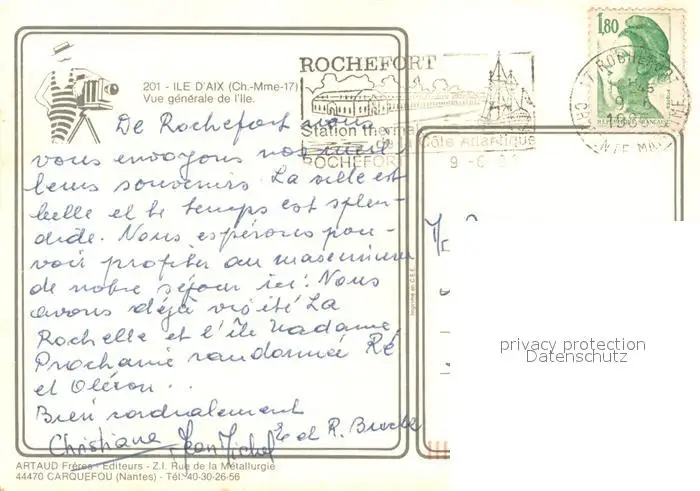 201 - ILE D'AIX (Ch.-Mme-17)
Vue générale de l'Ile.
ROCHEFORT
Station thermale
de la Côte Atlantique
ROCHEFORT
1,80
RÉPUBLIQUE FRANÇAISE
De Rochefort nous
vous envoyons nos meil
leurs souvenirs. La ville est
belle et le temps est splen-
dide. Nous espérons pou-
voir profiter au maximum
de notre séjour ici! Nous
avons déjà visité La
Rochelle et l'île Madame,
Prochaine randonnée Ré
et Oléron...
Bien cordialement
Christiane Jean Michel
et R.
Imprimé en C.E.E.
privacy protection
Datenschutz
ARTAUD Frères - Editeurs - Z.I. Rue de la Métallurgie
44470 CARQUEFOU (Nantes) - Tél. 40-30-26-56